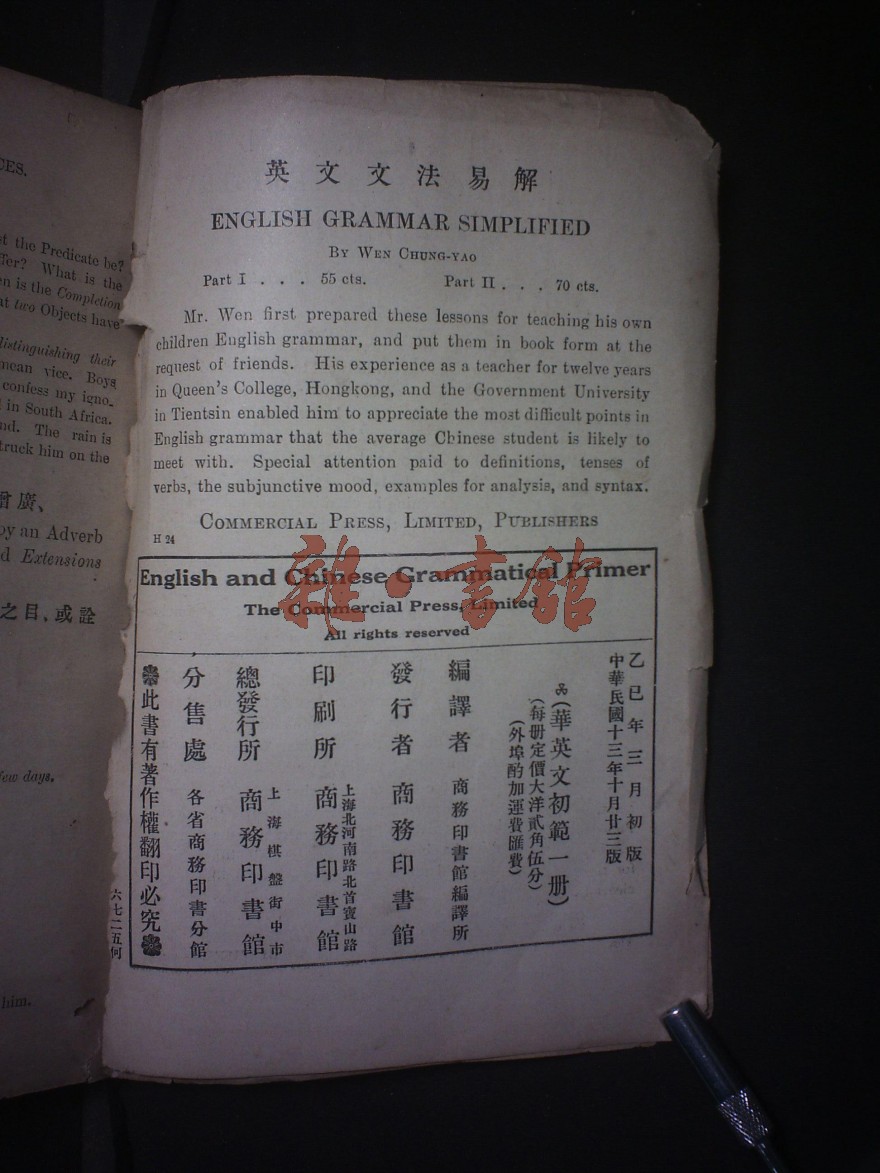 CES.
t the Predicate be?
fer? What is the
en is the Completion
at two Objects have
distinguishing their
mean vice. Boys
confess my igno-
l in South Africa.
nd. The rain is
truck him on the
增廣、
by an Adverb
d Extensions
之目、或詮
few days.
him.
英文文法易解
ENGLISH GRAMMAR SIMPLIFIED
BY WEN CHUNG-YAO
Part I . . . 55 cts. Part II . . . 70 cts.
Mr. Wen first prepared these lessons for teaching his own
children English grammar, and put them in book form at the
request of friends. His experience as a teacher for twelve years
in Queen's College, Hongkong, and the Government University
in Tientsin enabled him to appreciate the most difficult points in
English grammar that the average Chinese student is likely to
meet with. Special attention paid to definitions, tenses of
verbs, the subjunctive mood, examples for analysis, and syntax.
COMMERCIAL PRESS, LIMITED, PUBLISHERS
H 24
English and Chinese Grammatical Primer
The Commercial Press, Limited
All rights reserved
雜·書館
乙巳年三月初版
中華民國十三年十月廿三版
(華英文初範一册)
(每册定價大洋貳角伍分)
(外埠酌加運費匯費)
編譯者 商務印書館編譯所
發行者 商務印書館
印刷所 上海北河南路北首寶山路
商務印書館
總發行所 上海棋盤街中市
商務印書館
分售處 各省商務印書分館
此書有著作權翻印必究
六七二五何